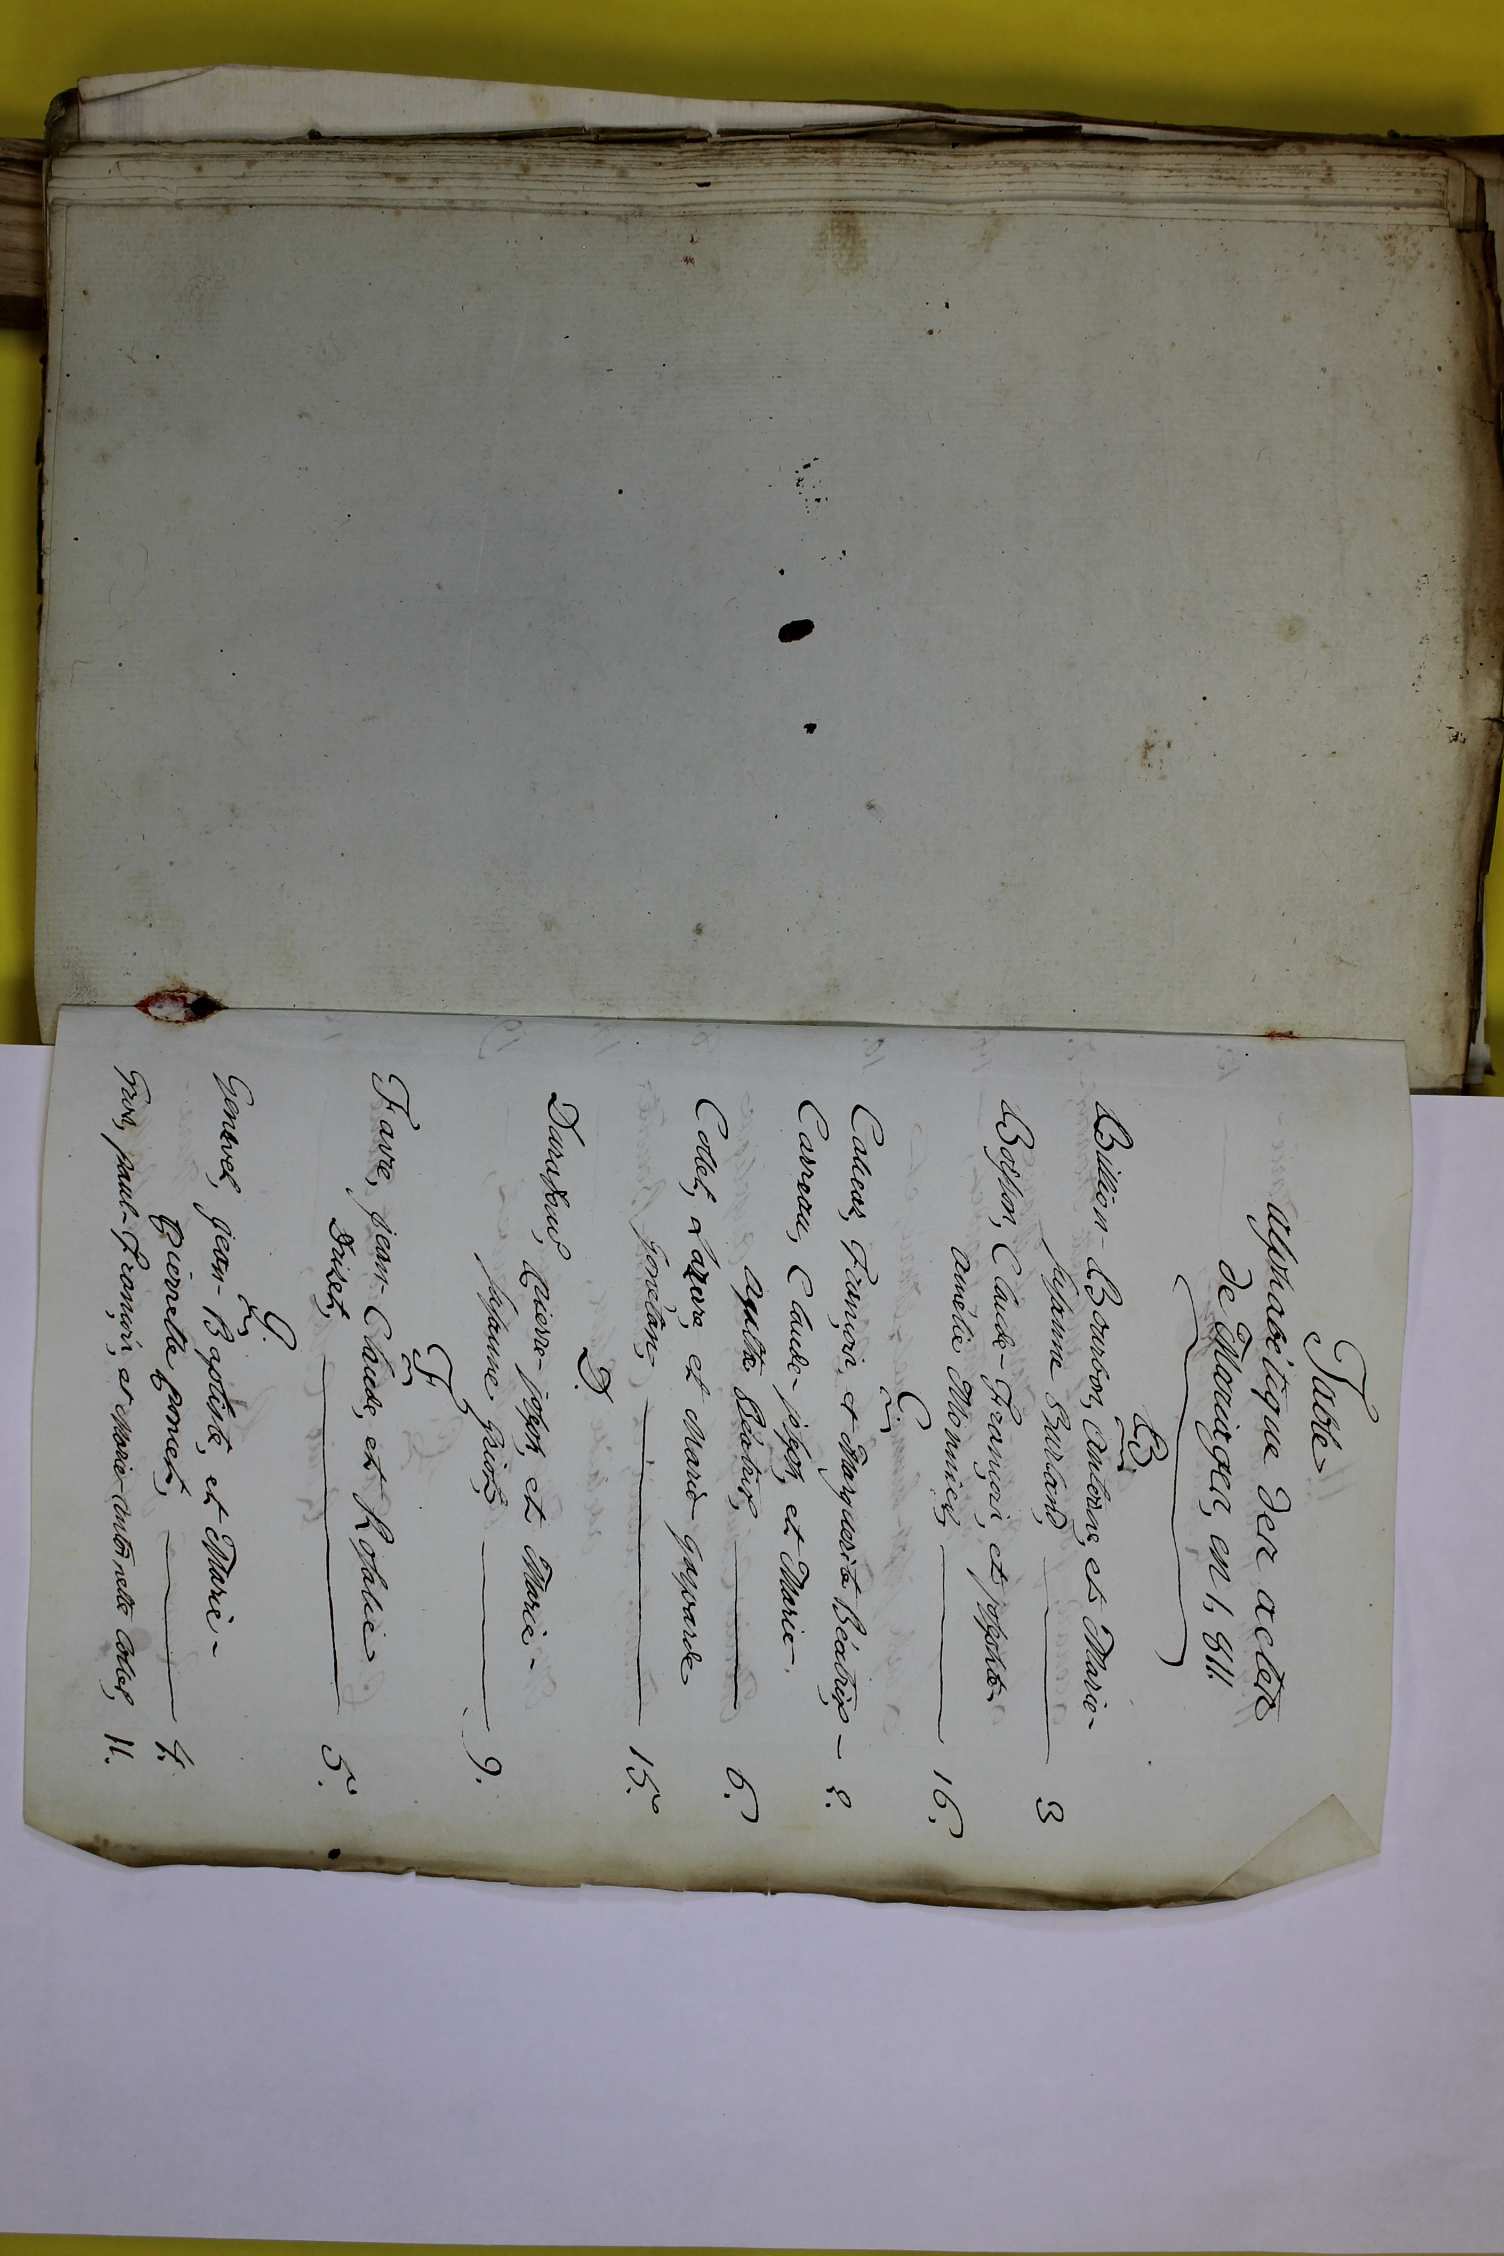 Table
alphabétique des actes
de Mariages, en 1,811.
B.
Billion-Bourbon, Antoine, et Marie-
Susanne Burland, 3
Bosson, Claude-François, et josephte
Amélie Monnier, 16.
C.
Caheas, François, et Marguerite Béatrix 8.
Carreau, Claude-joseph, et Marie-
Agathe Béatrix, 6.
Collet, Lazare, et Marie-
Gonetan, 15.
D.
Pierre-joseph, et Marie-
Susanne Griot, 9.
F.
Favre, jean-Claude, et Rosalie
Druset, 5.
G.
Genevel, jean-Baptiste, et Marie-
Pierrette Poncet, 4.
Gros, paul-François, et Marie-antoinette 11.